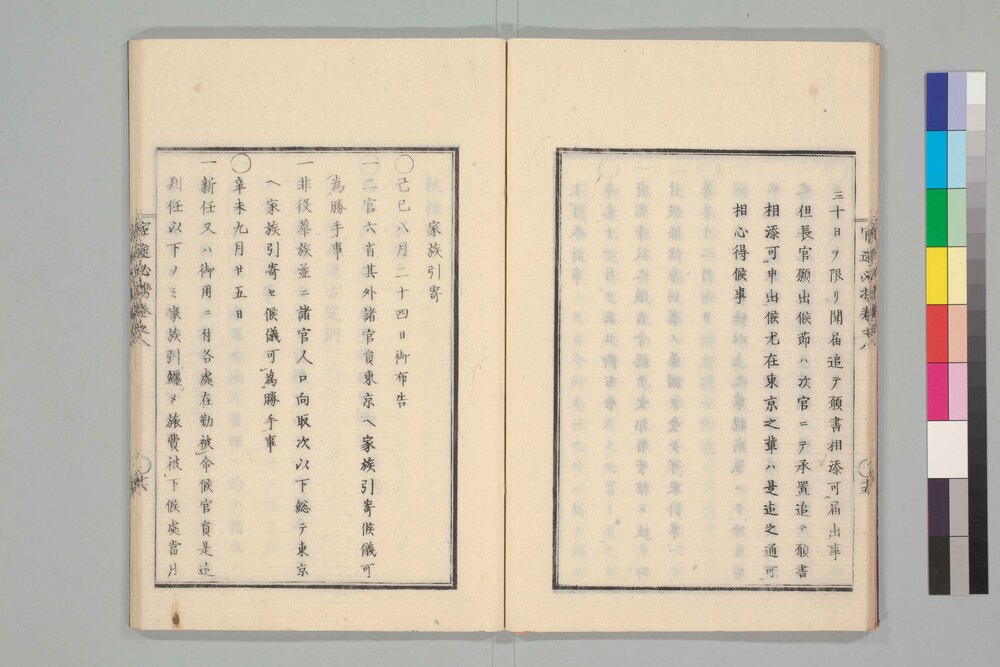 三十日ヲ限リ聞届追テ願書相添可届出事
但長官願出候節ハ次官ニテ承置追テ願書
相添可申出候尤在東京之輩ハ是迄之通可
相心得候事
家族引寄
〇己巳八月二十四日御布告
一二官六省其外諸官員東京ヘ家族引寄候儀可
為勝手事
一非役華族並ニ諸官人口向取次以下総テ東京
ヘ家族引寄セ候儀可為勝手事
〇辛未九月廿五日
一新任又ハ御用ニ付各處在勤被命候官員是迄
判任以下ノミ家族引纏メ旅費被下候處當月